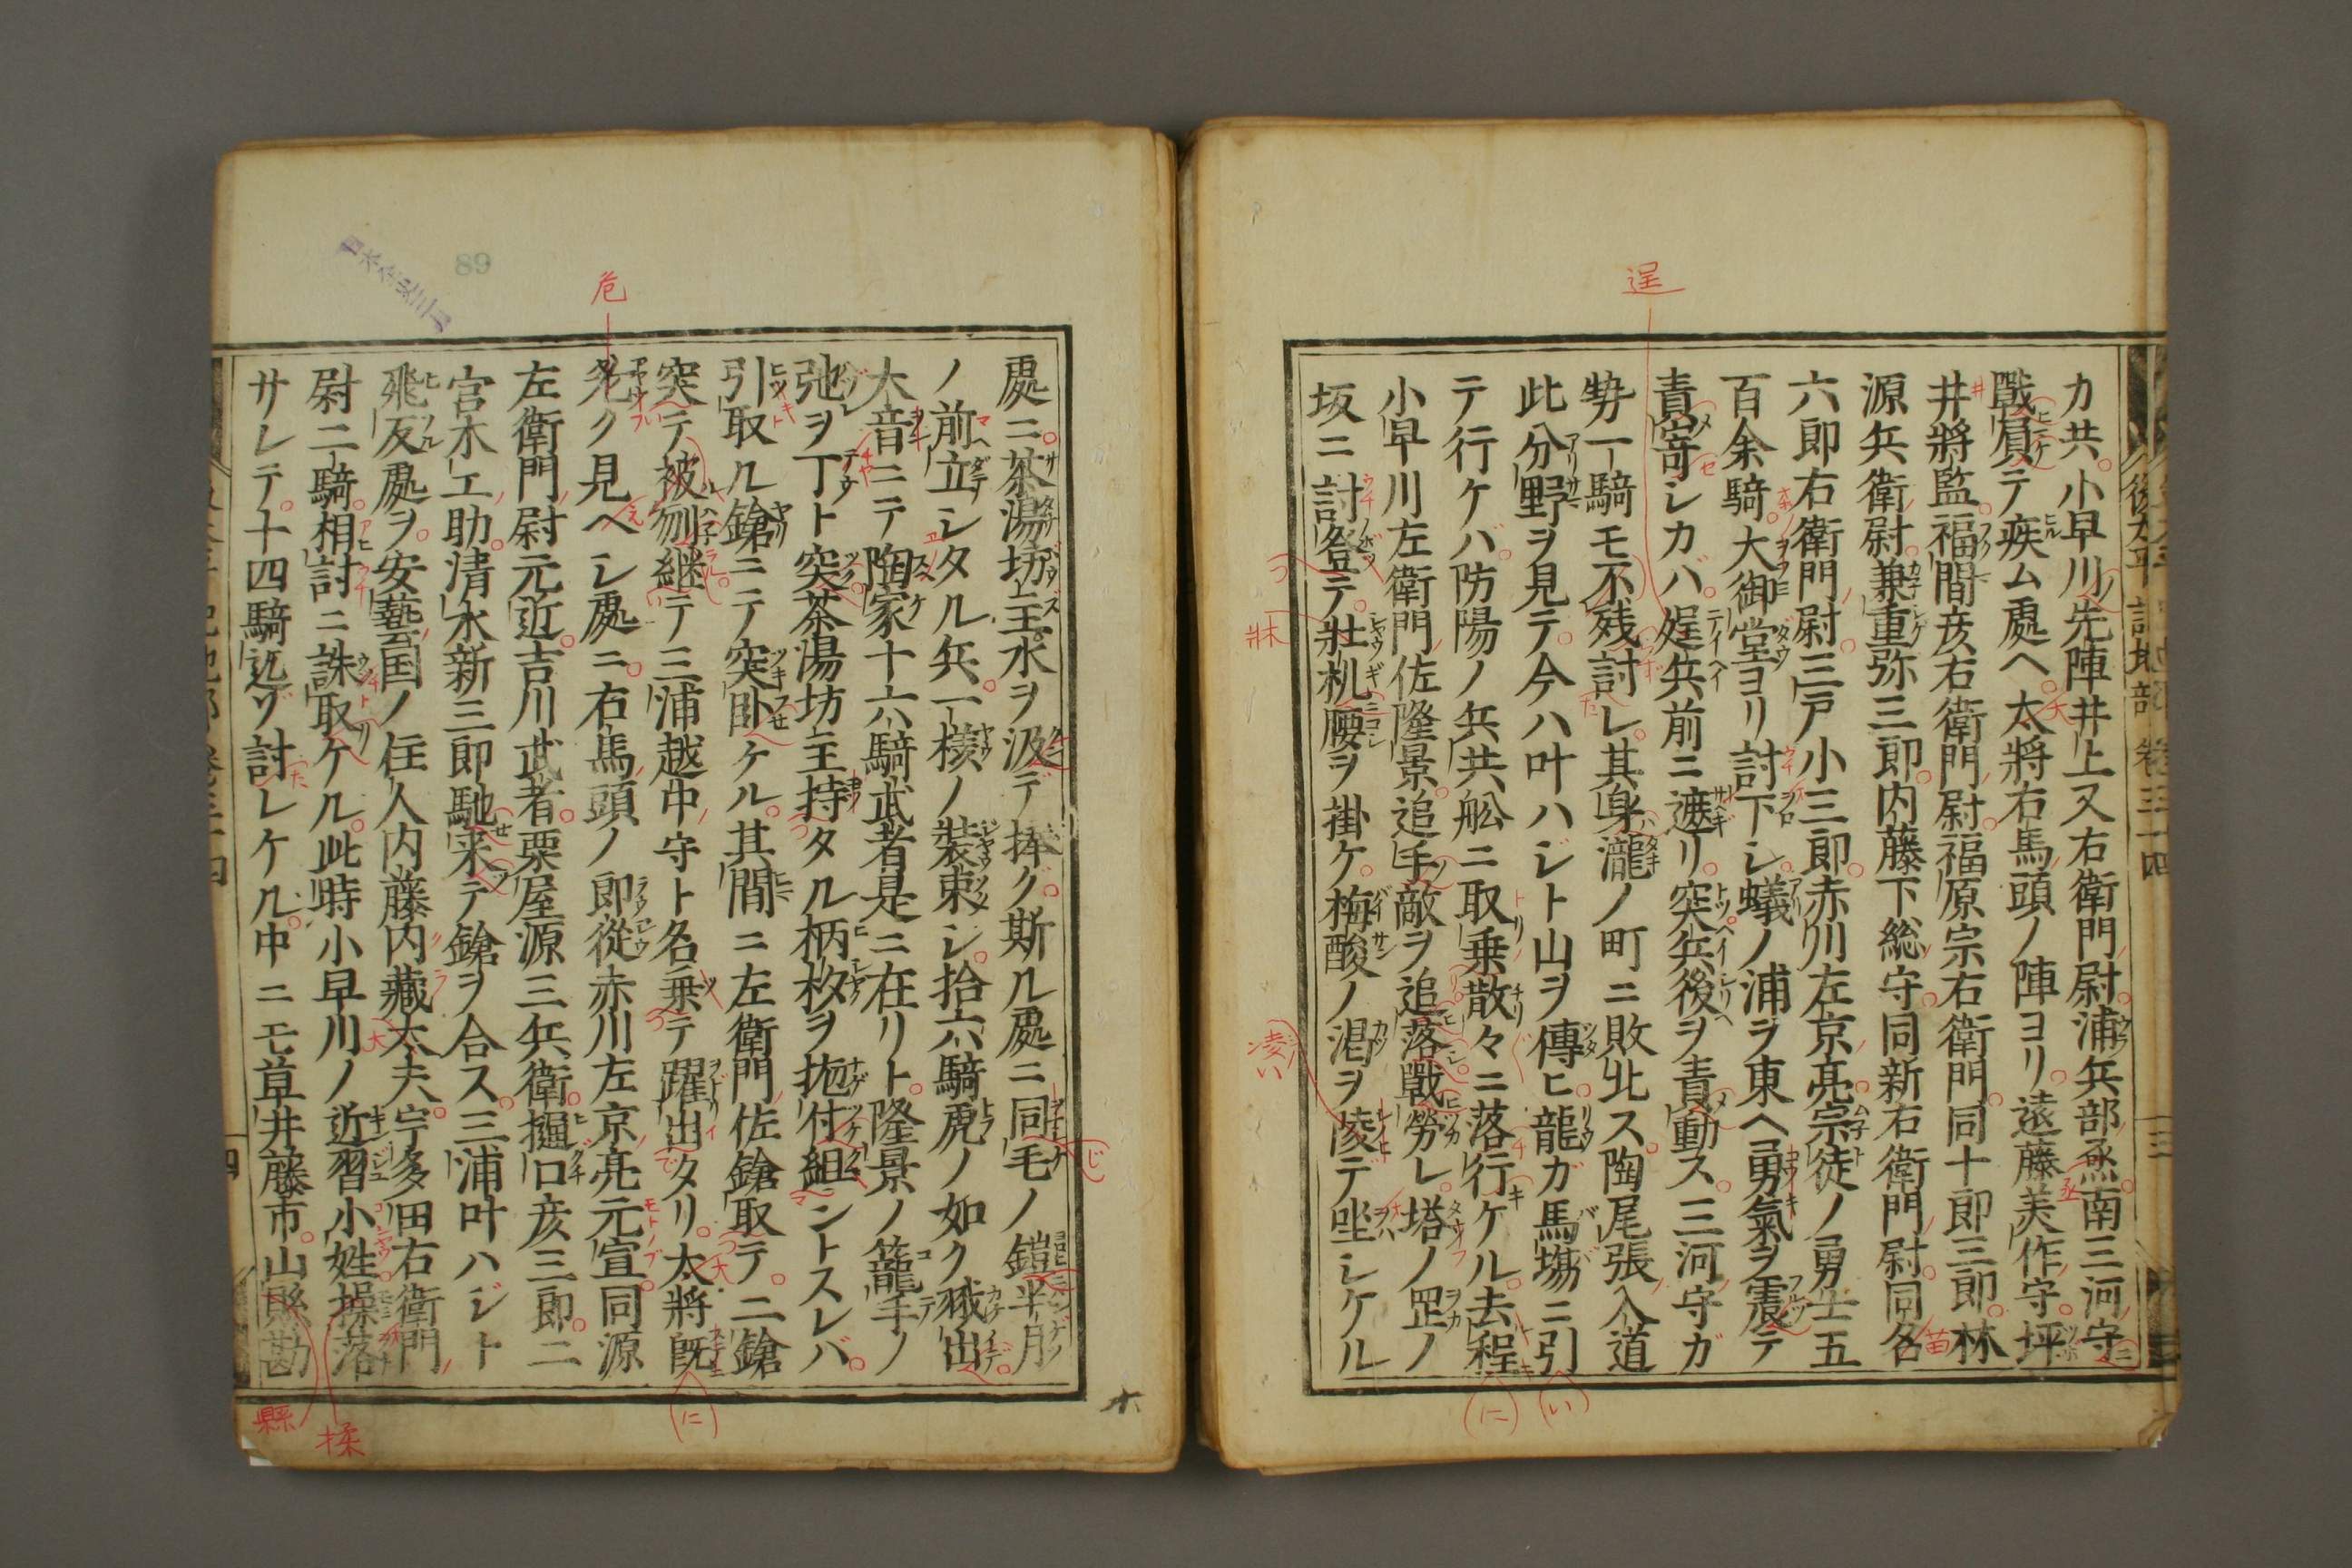 カ共小早川先陣井上又右衛門尉浦兵部烝南三河守
戰負テ疾ム處ヘ太將右馬頭ノ陣ヨリ遠藤美作守坪
井將監福間彦右衛門尉福原宗右衛門同十郎三郎林
源兵衛尉兼重弥三郎内藤下総守同新右衛門尉同名
六郎右衛門尉三戸小三郎赤川左京亮宗徒ノ勇士五
百余騎大御堂ヨリ討下シ蟻ノ浦ヲ東ヘ勇氣ヲ震テ
責寄シカバ逞兵前ニ遮リ突兵後ヲ責動ス三河守ガ
勢一騎モ不残討レ其身瀧ノ町ニ敗北ス陶尾張入道
此分野ヲ見テ今ハ叶ハジト山ヲ傳ヒ龍ガ馬塲ニ引
テ行ケバ防陽ノ兵共舩ニ取乗散々ニ落行ケル去程
小早川左衛門佐隆景追手敵ヲ追落戰勞レ塔ノ罡ノ
坂ニ討登テ牀机腰ヲ掛ケ梅酸ノ渇ヲ陵デ坐シケル
處ニ茶湯坊主水ヲ汲デ捧グ斯ル處ニ同毛ノ鎧半月
ノ前立シタル兵一樣ノ裝束シ拾六騎虎ノ如ク駈出
大音ニテ陶家十六騎武者是ニ在リト隆景ノ籠手ノ
弛ヲ丁ト突茶湯坊主持タル柄杓ヲ抛付組ントスレバ
引取ル鎗ニテ突卧ケル其間ニ左衛門佐鎗取テ二鎗
突テ被刎継テ三浦越中守ト名乗テ躍出タリ太將既
危ク見ヘシ處ニ右馬頭ノ郎從赤川左京亮元宣同源
左衛門尉元近吉川武者粟屋源三兵衛樋口彦三郎二
宮木工助清水新三郎馳来テ鎗ヲ合ス三浦叶ハジト
飛反處ヲ安藝国ノ住人内藤内藏太夫宇多田右衛門
尉二騎相討ニ誅取ケル此時小早川ノ近習小姓操落
サレテ十四騎迄ゾ討レケル中ニモ草井藤市山縣勘
後太平記地部 卷三十四
三
四
逞
危
89
床
凌
い
に
い
に
縣
揉
苗
丞